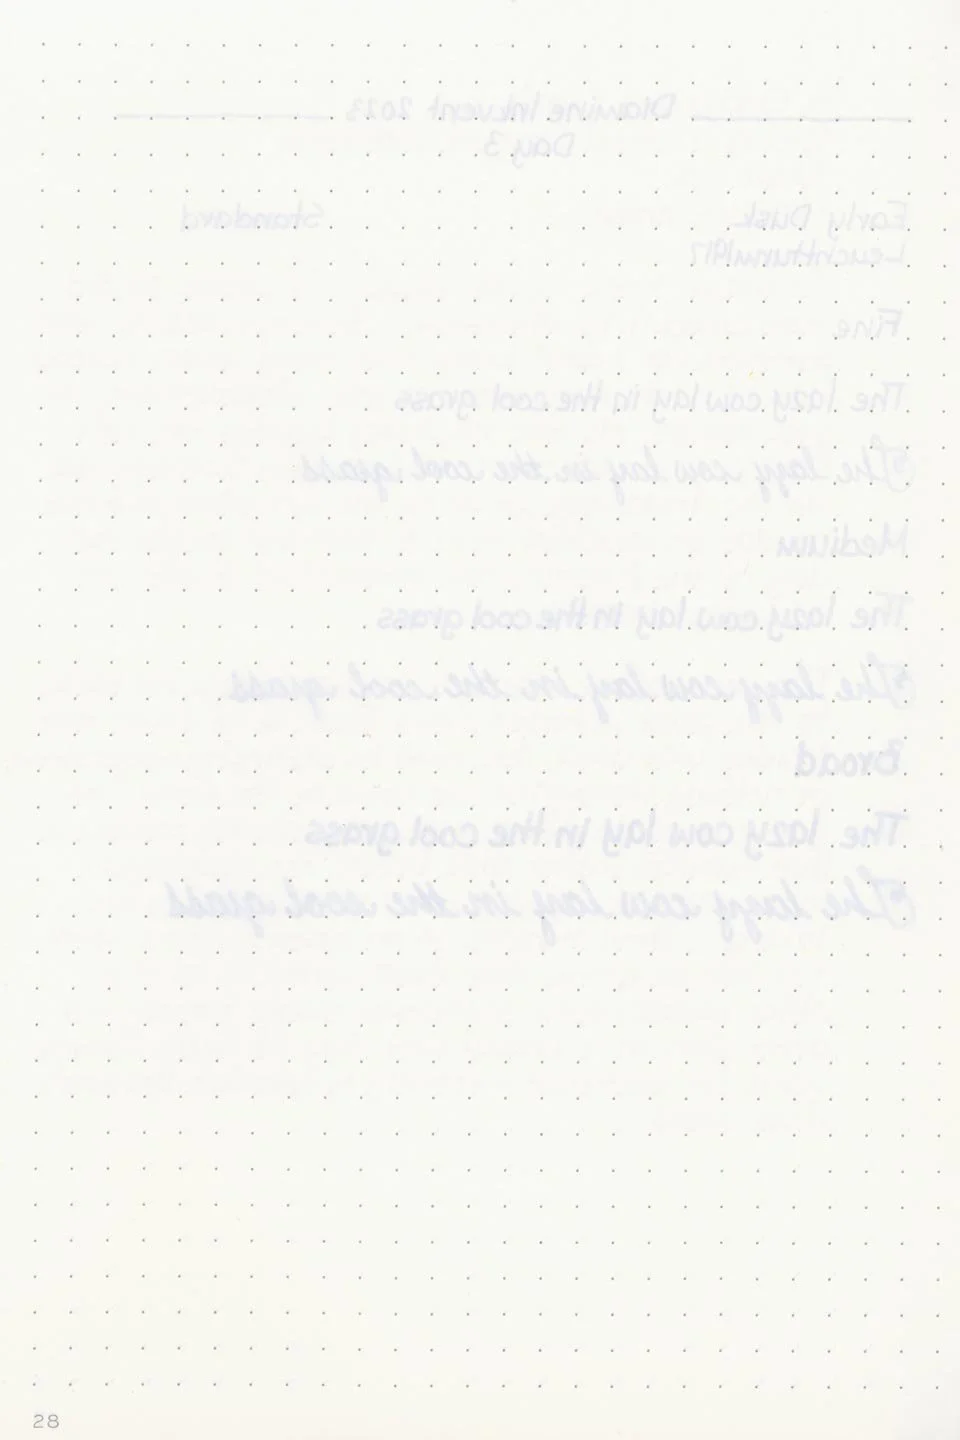 Diamine Inkvent 2023
Day 3
Early Dusk Standard
Leuchtturm1917
Fine
The lazy cow lay in the cool grass
The lazy cow lay in the cool grass
Medium
The lazy cow lay in the cool grass
The lazy cow lay in the cool grass
Broad
The lazy cow lay in the cool grass
The lazy cow lay in the cool grass
28